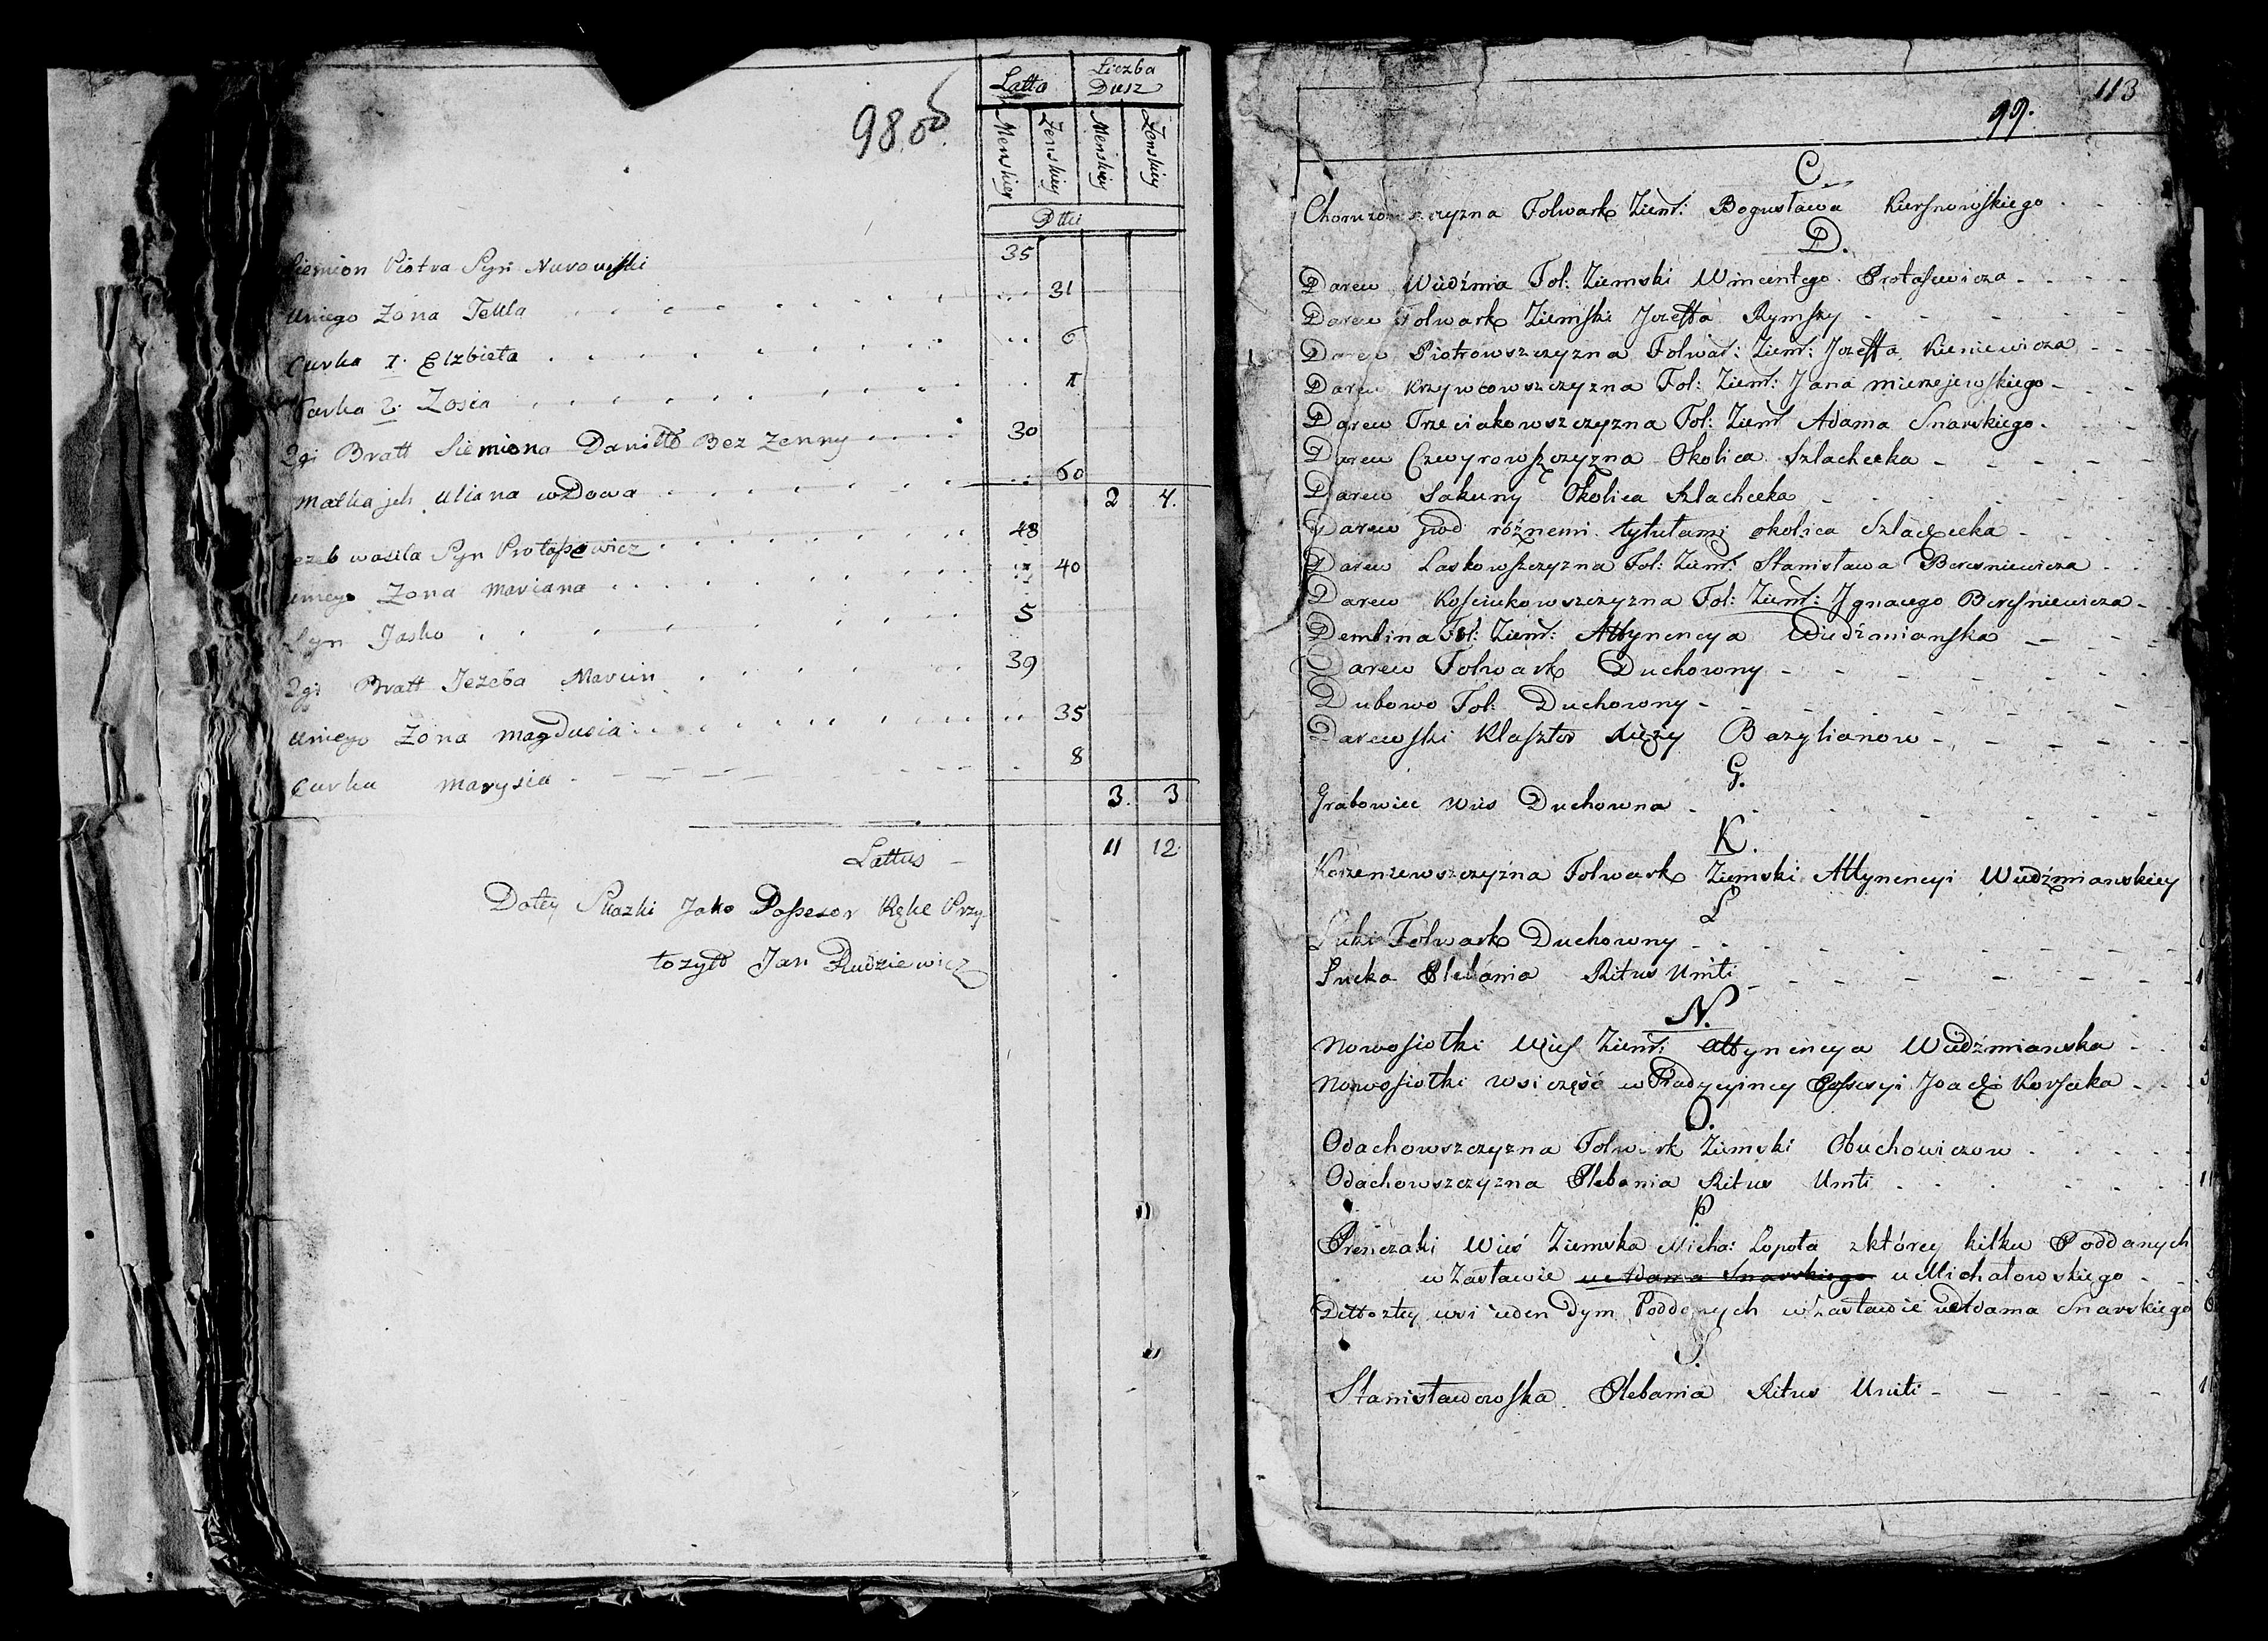 98 об.
Latta
Liczba Dusz
Menskiey Zenskiey Menskiey Zenskiey
Dtti
Siemion Piotra Syn Nurowski 35
Uniego Zona Tekla 31
Curka 1. Elzbieta 6
Curka 2. Zosia 1
2gi Bratt Siemiona Daniłło Bez Zenny 30
Matka jch Uliana wdowa 60
2 4.
Jezeb wasila Syn Protasewicz 48
Uniego Zona Mariana 40
Syn Jasko 5
2gi Bratt Jezeba Marcin 39
Uniego Zona Magdusia 35
Curka Marysia 8
3. 3
Lattus 11 12
Do tey Skazki Jako Possesor Rękę Przy
łozyłł Jan Rudziewicz
113
99.
C.
Folwark Ziems: Bogusława Kiersnowskiego
D.
Darew Wiedźmia Fol: Ziemski Wincentego Protasewicza
Darew Folwark Ziemski Jozeffa Rymszy
Darew Piotrowszczyzna Folwar: Ziems: Jozeffa Kieniewicza
Darew Krzywcowszczyzna Fol: Ziems: Jana Mierzejewskiego
Darew Trzeciakowszczyzna Fol: Ziems Adama Snarskiego
Darew Czwyrowszczyzna Okolica Szlachecka
Darew Sakuny Okolica Szlachecka
Darew pod różnemi tytułami okolica Szlachecka
Darew Laskowszczyzna Fol: Ziems: Stanisława Beresniewicza
Darew Kościukowszczyzna Fol: Ziems: Jgnacego Beresniewicza
Dembina Fol: Ziems: Attynencya Wiedźmianska
Darew Folwark Duchowny
Dubowo Fol: Duchowny
Darewski Klasztor Xięży Bazylianow
G.
Grabowiec Wies Duchowna
K.
Korzeniewszczyzna Folwark Ziemski Attynencyi Wiedźmianskiey
L
Łuki Folwark Duchowny
Łucka Plebania Ritus Uniti
N.
Nowosiołki Wieś Ziems: Attynencya Wiedźmianska
Nowosiołki wsi część w Tradycyiney Possesyi Joach Korsaka
O.
Odachowszczyzna Folwark Ziemski Obuchowiczow
Odachowszczyzna Plebania Ritus Uniti
P
Prenczaki Wieś Ziemska Micha: Lopota z którey kilku Poddanych
w Zastawie u Adama Snarskiego u Michałowskiego
Ditto ztey wsi ieden Dym Poddanych w Zastawie u Adama Snarskiego
S.
Stanisławowska Plebania Ritus Uniti